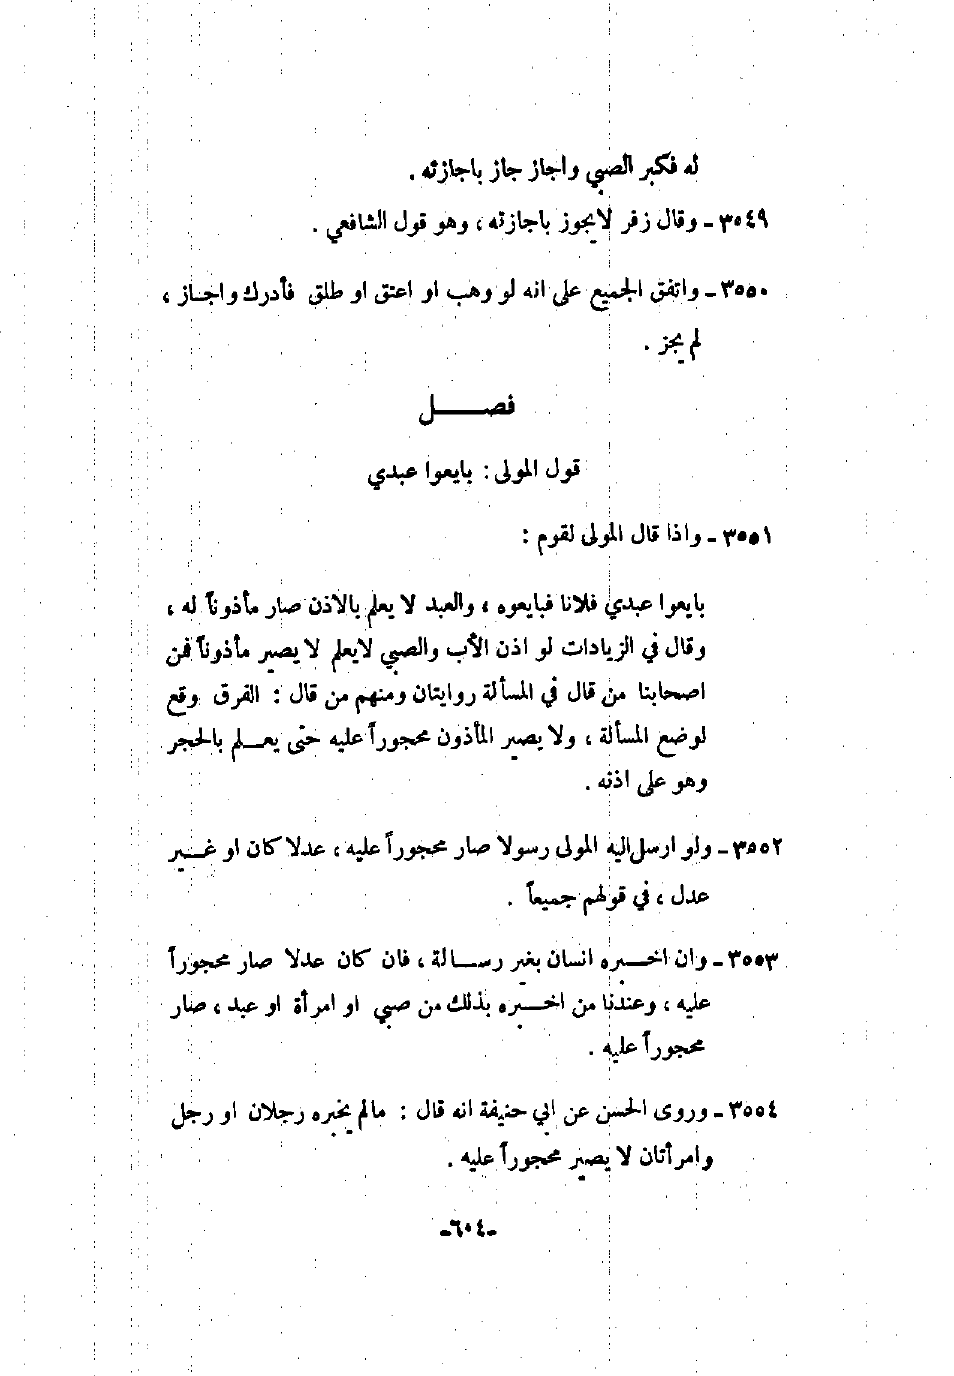 له فكبر الصبي واجاز جاز باجازته .
٣٥٤٩ ـ وقال زفر لايجوز باجازته ، وهو قول الشافعي .
٣٥٥٠ ـ واتفق الجميع على انه لو وهب او اعتق او طلق فأدرك واجاز ،
لم يجز .
فصــــل
قول المولى : بايعوا عبدي
٣٥٥١ ـ واذا قال المولى لقوم :
بايعوا عبدي فلانا فبايعوه ، والعبد لا يعلم بالاذن صار مأذوناً له ،
وقال في الزيادات لو اذن الأب والصبي لايعلم لا يصير مأذوناً فمن
اصحابنا من قال في المسألة روايتان ومنهم من قال : الفرق وقع
لوضع المسألة ، ولا يصير المأذون محجوراً عليه حتى يعــلم بالحجر
وهو على اذنه .
٣٥٥٢ ـ ولو ارسل اليه المولى رسولا صار محجوراً عليه ، عدلا كان او غــير
عدل ، في قولهم جميعاً .
٣٥٥٣ ـ وان اخــبره انسان بغير رســالة ، فان كان عدلا صار محجوراً
عليه ، وعندنا من اخــبره بذلك من صبي او امرأة او عبد ، صار
محجوراً عليه .
٣٥٥٤ ـ وروى الحسن عن ابي حنيفة انه قال : مالم يخبره رجلان او رجل
وامرأتان لا يصير محجوراً عليه .
ـ٦٠٤ـ